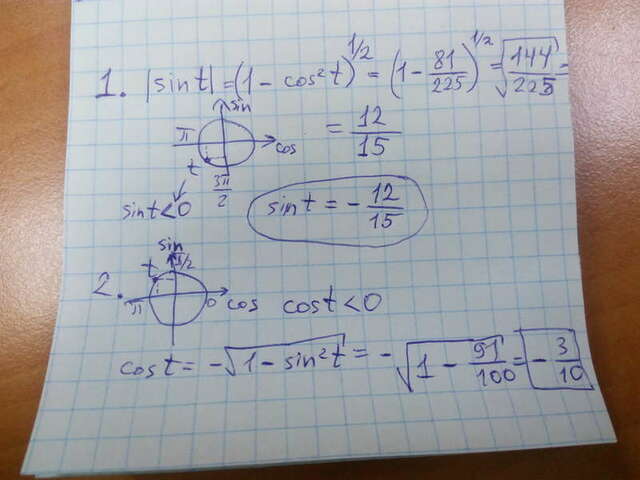 1. |sin t| = (1 - cos²t)^1/2 = (1 - 81/225)^1/2 = √144/225 =
= 12/15
sin
π
cos
t
3π/2
sin t < 0
sin t = - 12/15
2.
sin
π/2
t
π
0
cos
cos t < 0
cos t = -√1 - sin²t = -√1 - 91/100 = - 3/10